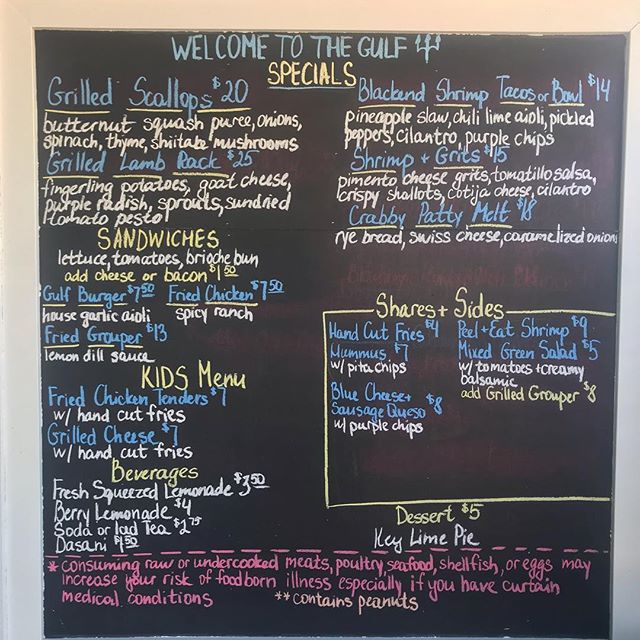 WELCOME TO THE GULF
SPECIALS
Grilled Scallops $20
butternut squash puree, onions,
spinach, thyme, shiitate mushrooms
Grilled Lamb Rack $25
fingerling potatoes, goat cheese,
purple radish, sprouts, sundried
tomato pesto
Blackend Shrimp Tacos or Bowl $14
pineapple slaw, chili lime aioli, pickled
peppers, cilantro, purple chips
Shrimp + Grits $15
pimento cheese grits, tomatillo salsa,
crispy shallots, cotija cheese, cilantro
Crabby Patty Melt $18
rye bread, swiss cheese, caramelized onions
SANDWICHES
lettuce, tomatoes, brioche bun
add cheese or bacon $1.50
Gulf Burger $7.50
house garlic aioli
Fried Chicken $7.50
spicy ranch
Fried Grouper $13
lemon dill sauce
KIDS Menu
Fried Chicken Tenders $7
w/ hand cut fries
Grilled Cheese $7
w/ hand cut fries
Beverages
Fresh Squeezed Lemonade $3.50
Berry Lemonade $4
Soda or Iced Tea $2.75
Dasani $1.50
Shares + Sides
Hand Cut Fries $4
Hummus $7
w/ pita chips
Blue Cheese +
Sausage Queso $8
w/ purple chips
Peel + Eat Shrimp $9
Mixed Green Salad $5
w/ tomatoes + creamy
balsamic
add Grilled Grouper $8
Dessert $5
Key Lime Pie
*consuming raw or undercooked meats, poultry, seafood, shellfish, or eggs may
increase your risk of foodborn illness especially if you have curtain
medical conditions
**contains peanuts